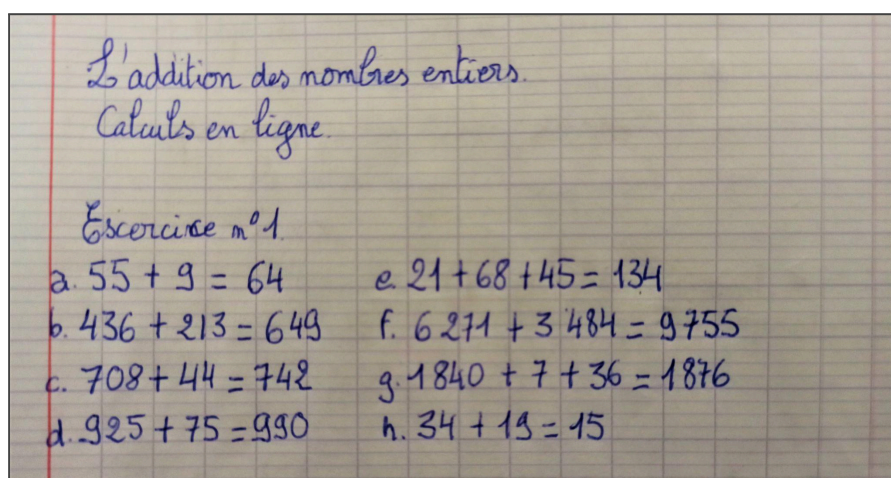 L'addition des nombres entiers.
Calculs en ligne.
Escercice n°1.
a. 55 + 9 = 64
b. 436 + 213 = 649
c. 708 + 44 = 742
d. 925 + 75 = 990
e. 21 + 68 + 45 = 134
f. 6 271 + 3 484 = 9 755
g. 1840 + 7 + 36 = 1876
h. 34 + 19 = 15